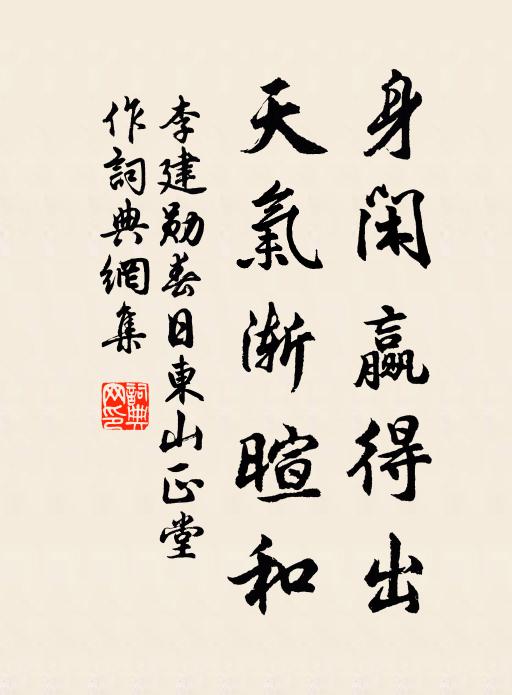 身閑贏得出
天氣漸暄和
李建勛春日東山正堂
作詞典網集
詞典網印